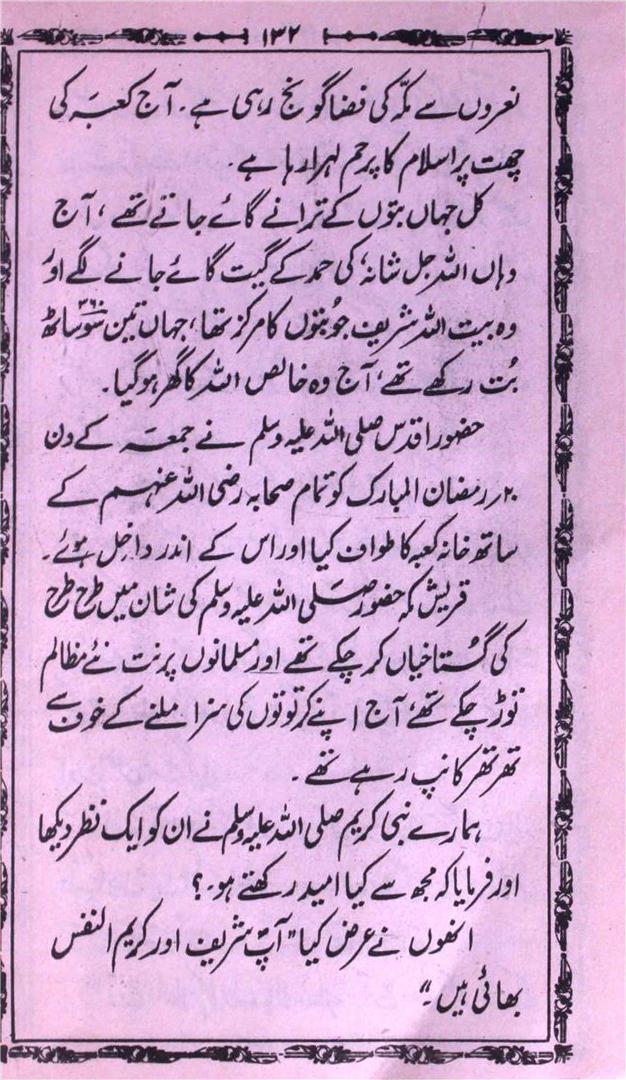 ۱۳۲
نعروں سے مکہ کی فضا گونج رہی ہے۔ آج کعبہ کی
چھت پر اسلام کا پرچم لہرا رہا ہے۔
کل جہاں بتوں کے ترانے گائے جاتے تھے، آج
وہاں اللہ جل شانہٗ کی حمد کے گیت گائے جانے لگے اور
وہ بیت اللہ شریف جو بتوں کا مرکز تھا، جہاں تین سو ساٹھ ۳۶۰
بُت رکھے تھے، آج وہ خالص اللہ کا گھر ہو گیا۔
حضور اقدس صلی اللہ علیہ وسلم نے جمعہ کے دن
۲۰ رمضان المبارک کو تمام صحابہ رضی اللہ عنہم کے
ساتھ خانہ کعبہ کا طواف کیا اور اس کے اندر داخل ہوئے۔
قریش کہ حضور صلی اللہ علیہ وسلم کی شان میں طرح طرح
کی گستاخیاں کر چکے تھے اور مسلمانوں پر نت نئے مظالم
توڑ چکے تھے، آج اپنے کرتوتوں کی سزا ملنے کے خوف سے
تھر تھر کانپ رہے تھے۔
ہمارے نبی کریم صلی اللہ علیہ وسلم نے ان کو ایک نظر دیکھا
اور فرمایا کہ مجھ سے کیا امید رکھتے ہو۔؟
انھوں نے عرض کیا "آپؐ شریف اور کریم النفس
بھائی ہیں۔"